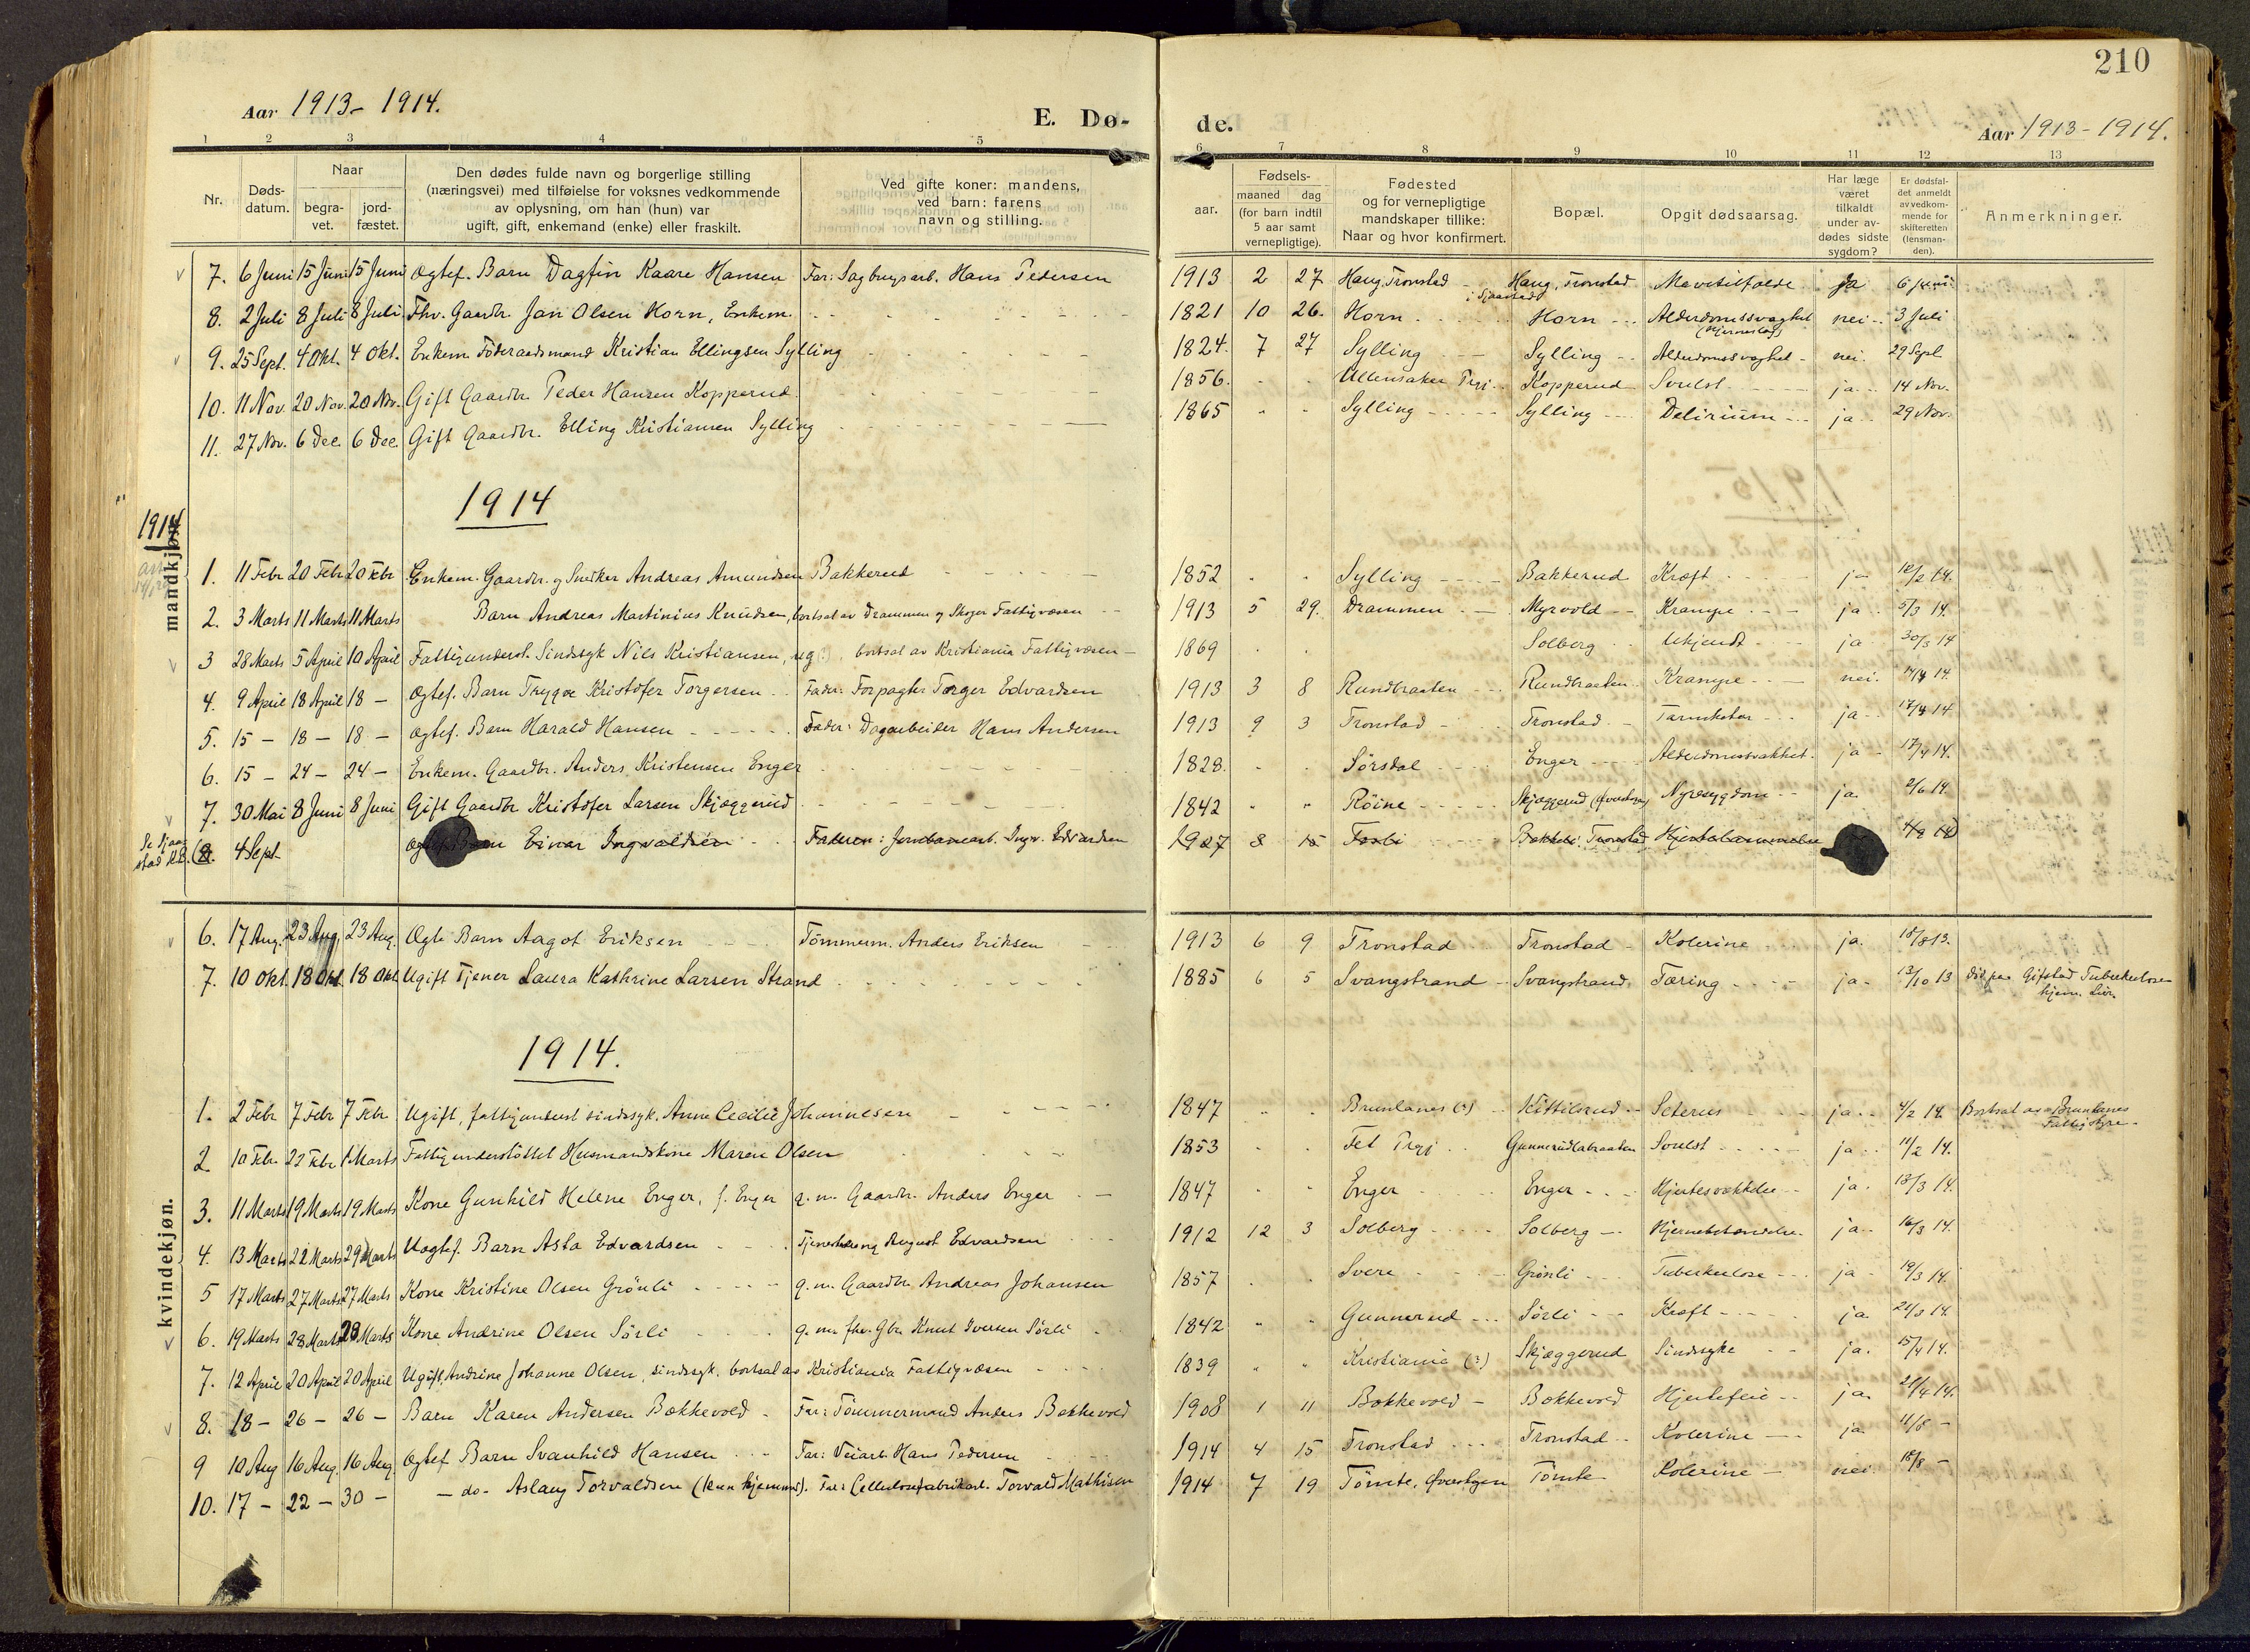 210
Aar 1913-1914.
E. Dø-
de.
Aar 1913-1914.
1 2 3 4 5
6 7 8 9 10 11 12 13
Nr.
Døds-
datum.
Naar
begra-
vet.
jord-
fæstet.
Den dødes fulde navn og borgerlige stilling
(næringsvei) med tilføielse for voksnes vedkommende
av oplysning, om han (hun) var
ugift, gift, enkemand (enke) eller fraskilt.
Ved gifte koner: mandens,
ved barn: farens
navn og stilling.
Fødsels-
aar.
maaned
dag
(for barn indtil
5 aar samt
vernepligtige).
Fødested
og for vernepligtige
mandskaper tillike:
Naar og hvor konfirmert.
Bopæl.
Opgit dødsaarsag.
Har læge
været
tilkaldt
under av-
dødes sidste
sygdom?
Er dødsfal-
det anmeldt
av vedkom-
mende for
skifteretten
(lensman-
den).
Anmerkninger.
7. 6 Juni 15 Juni 15 Juni Ogtef. Barn Dagfin Kaare Hansen Far: Sagbrugsarb. Hans Pedersen 1913 2 27 Haug, Tronstad Haug, Tronstad Mavetilfælde ja 6 Juni
8. 2 Juli 8 Juli 8 Juli Fhv. Gaardbr. Jan Olsen Horn, Enkem. 1821 10 26. Horn Horn Alderdomssvaghet nei 3 Juli
9. 25 Sept. 4 Okt. 4 Okt. Enkem. Föderaadsmand Kristian Ellingsen Sylling 1824. 7 27 Sylling Sylling Alderdomssvaghet nei. 29 Sept.
10. 11 Nov. 20 Nov. 20 Nov. Gift Gaardbr. Peder Hansen Kopperud. 1856. Ullensaker Prgj. Kopperud Svulst ja 14 Nov.
11. 27 Nov. 6 Dec. 6 Dec. Gift Gaardbr. Elling Kristiansen Sylling 1865 Sylling Sylling Delirium ja 29 Nov.
1914
1914
mandkjøn
1. 11 Febr 20 Febr 20 Febr Enkem. Gaardbr. og Snedker Andreas Amundsen Bakkerud 1852 Sylling Bakkerud Kræft ja 12/2 14.
2. 3 Marts 11 Marts 11 Marts Barn Andreas Martinius Knudsen, bortsat av Drammen og Skoger Fattigvæsen 1913 5 29. Drammen Myrvold Krampe ja 5/3 14.
3 28 Marts 5 April 10 April Fattigunderst. Sindssyk Nils Kristiansen, ug. bortsat av Kristiania Fattigvæsen 1869 Solberg Ukjendt ja 30/3 14
4. 9 April 18 April 18 - Ogtef. Barn Trygve Kristofer Torgersen Fader: Forpagter Torger Edvardsen 1913 3 8 Rundbraaten Rundbraaten Krampe nei. 14/4 14.
5. 15 - 18 - 18 - Ogtef. Barn Harald Hansen Fader: Dagarbeider Hans Andersen 1913 9 3 Tronstad Tronstad Tarmkatar ja 17/4 14
6. 15 - 24 - 24 - Enkem. Gaardbr. Anders Kristensen Enger 1828. Sørsdal Enger Alderdomssvakhet. ja 17/4 14.
7. 30 Mai 8 Juni 8 Juni Gift Gaardbr Kristofer Larsen Skjæggerud 1842 Röine Skjæggerud Nyresygdom ja. 2/6 14
8. 4 Sept. Einar Ingvaldsen Faderen: Jernbanearb. Ingv. Edvardsen 1907 8 15 Tronstad Hjertelammelse
6. 17 Aug. 23 Aug. 23 Aug. Ogte Barn Aagot Eriksen Tömmerm. Anders Eriksen 1913 6 9 Tronstad Tronstad Kolerine ja. 18/8 13.
7. 10 Okt. 18 Okt. 18 Okt Ugift Tjener Laura Kathrine Larsen Strand 1885 6 5 Svangstrand Svangstrand Tæring ja. 13/10 13 död paa Gifstad Tuberkulose-
hjem. Lier.
1914.
kvindekjøn.
1. 2 Febr 7 Febr 7 Febr Ugift, fattigunderst. sindssyk. Anne Cecilie Johannesen 1847 Brunlanes (?) Kittilsrud Seterus ja 4/2 14. Bortsat av Brunlanes
Fattigstyre.
2 10 Febr. 22 Febr 1 Marts Fattigunderstöttet Husmandskone Maren Olsen 1853 Fet Prgj. Gunnerudbraaten Svulst ja 11/2 14.
3. 11 Marts 19 Marts 19 Marts Kone Gunhild Helene Enger, f. Enger g. m. Gaardbr. Anders Enger 1847 Enger Enger Hjertesvækkelse ja. 13/3 14.
4. 13 Marts 22 Marts 29 Marts Uogtef. Barn Asta Edvardsen Tjenestedreng August Edvardsen 1912 12 3 Solberg Solberg Hjernebetændelse. ja 16/3 14.
5 17 Marts 27 Marts 27 Marts Kone Kristine Olsen Grönli g. m. Gaardbr. Andreas Johansen 1857 Svere Grönli Tuberkulose ja 19/3 14.
6. 19 Marts 28 Marts 28 Marts Kone Andrine Olsen Sörli g. m. fhv. Gbr. Knut Iversen Sörli 1842 Gunnerud Sörli Kræft ja 21/3 14.
7. 12 April 20 April 20 April Ugift, Andrine Johanne Olsen, sindssyk, bortsat av Kristiania Fattigvæsen 1839 Kristiania (?) Skjæggerud Sindssyke ja. 15/4 14.
8. 18 - 26 - 26 - Barn Karen Andersen Bækkevold Far: Tömmermand Anders Bækkevold 1908 1 11 Bækkevold Bækkevold Hjertefeil ja 21/4 14.
9 10 Aug 16 Aug. 16 Aug. Ogtef Barn Svanhild Hansen Far: Veiarb. Hans Pedersen 1914 4 15 Tronstad Tronstad Kolerine ja 11/8 -
10. 17 - 22 - 30 - - do - Aslaug Torvaldsen (kun hjemmed). Far: Cellulosefabrikarb. Torvald Mathisen 1914 7 19 Tömte, Tömte Kolerine nei. 18/8 -